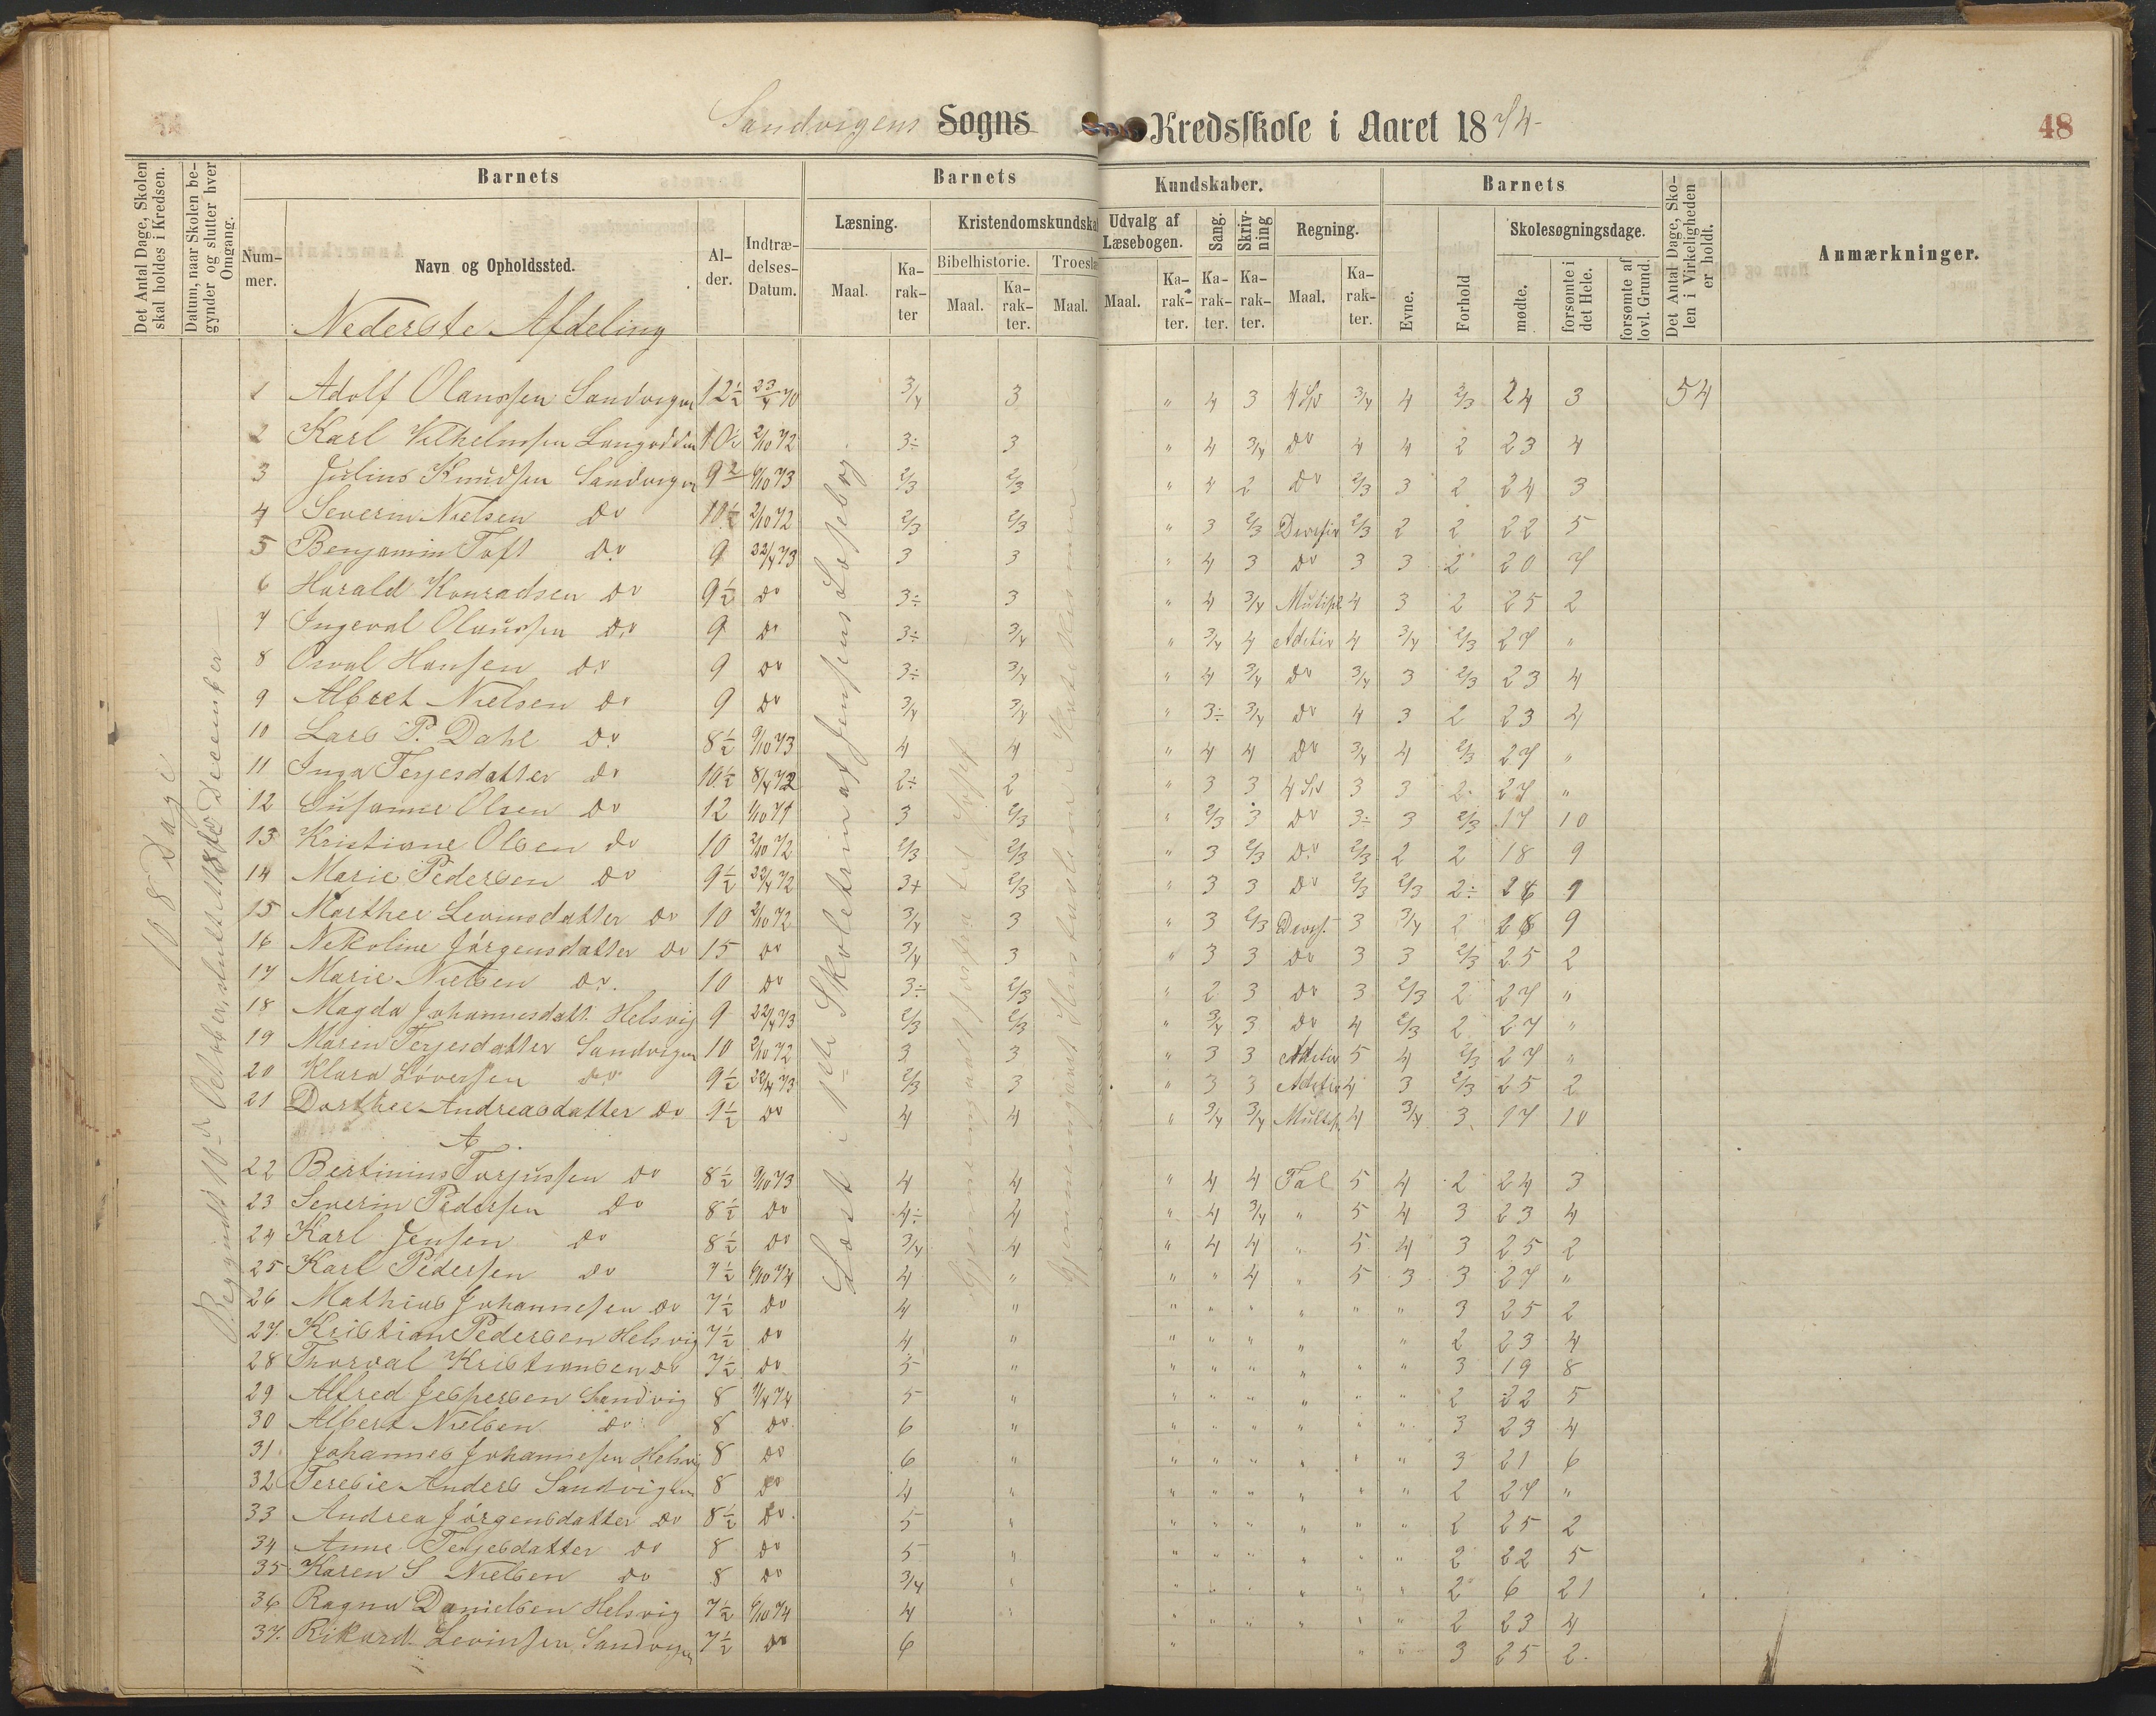 Sandvigens Sogns Kredsskole i Aaret 1874-
48
Det Antal Dage, Skolen skal holdes i Kredsen.
Datum, naar Skolen begynder og slutter hver Omgang.
Barnets
Nummer.
Navn og Opholdssted.
Alder.
Indtrædelses-Datum.
Barnets Kundskaber.
Læsning.
Maal.
Karakter
Kristendomskundska
Bibelhistorie.
Maal.
Karakter.
Troeslæ
Maal.
Udvalg af Læsebogen.
Maal.
Karakter.
Sang.
Karakter.
Skrivning
Karakter.
Regning.
Maal.
Karakter.
Barnets
Evne.
Forhold
Skolesøgningsdage.
mødte.
forsømte i det Hele.
forsømte af lovl. Grund.
Det Antal Dage, Skolen i Virkeligheden er holdt.
Anmærkninger.
Nederste Afdeling
108 Dage
Læst i 1ste Skoletrin af Jensens Læsebog
1 Adolf Olaussen Sandvigen 12½ 23/4 70 3/4 3 " 4 3 4 Sp 3/4 4 2/3 24 3 54
2 Karl Vilhelmsen Langodden 10½ 2/10 72 3÷ 3 " 4 3/4 do 4 4 2 23 4
3 Julius Knudsen Sandvigen 9½ 6/10 73 2/3 2/3 " 4 2 do 2/3 3 2 24 3
4 Severin Nielsen do 10½ 2/10 72 2/3 2/3 " 3 2/3 Divisio 2/3 2 2 22 5
5 Benjamin Toft do 9 22/4 73 3 3 " 4 3 do 3 3 2 20 7
6 Harald Konradsen do 9½ do 3÷ 3 " 4 3/4 Mutipl 4 3 2 25 2
7 Ingeval Olaussen do 9 do 3÷ 3/4 " 3/4 4 Aditio 4 3/4 2/3 27 "
8 Osval Hansen do 9 do 3÷ 3/4 " 4 3/4 do 3/4 3 2/3 23 4
9 Albret Nielsen do 9 do 3/4 3/4 " 3÷ 3/4 do 4 3 2 23 4
10 Lars P. Dahl do 8½ 6/10 73 4 4 " 4 4 do 3/4 4 2/3 27 "
11 Inga Terjesdatter do 10½ 8/4 72 2÷ 2 " 3 3 4 Sp 3 3 2 27 "
12 Susanne Olsen do 12 1/10 71 3 2/3 " 2/3 3 do 3÷ 3 2/3 17 10
13 Kristiane Olsen do 10 2/10 72 2/3 2/3 " 3 2/3 do 2/3 2 2 18 9
14 Marie Pedersen do 9½ 22/4 72 3+ 2/3 " 3 3 do 2/3 2/3 2÷ 26 1
15 Marthee Levinsdatter do 10 2/10 72 3/4 3 " 3 2/3 Divis. 3 3/4 2 18 9
16 Nekoline Jörgensdatter do 15 do 3/4 3 " 3 3 do 3 3 2/3 25 2
17 Marie Nielsen do. 10 do 3÷ 2/3 " 2 3 do 3 2/3 2 27 "
18 Magda Johannesdatt. Helsvig 9 22/4 73 2/3 2/3 " 3/4 3 do 4 2/3 2 27 "
19 Maren Terjesdatter Sandvigen 10 2/10 72 3 3 " 3 3 Aditio 5 4 2/3 27 "
20 Klara Löversen do 9½ 22/4 73 2/3 3 " 3 3 Aditio 4 3 2/3 25 2
21 Dorthee Andreasdatter do 9½ do 4 4 " 3/4 3/4 Multip 4 3/4 3 17 10
22 Bertinius Torjussen do 8½ 6/10 73 4 4 " 4 4 Tal 5 4 2 24 3
23 Severin Pedersen do 8½ do 4÷ 4 " 4 3/4 " 5 4 3 23 4
24 Karl Jensen do 8½ do 3/4 4 " 4 4 " 5 4 3 25 2
25 Karl Pedersen do 7½ 6/10 74 4 " " " 4 " 5 3 3 27 "
26 Mathias Johannesen do 7½ do 4 " " " " " " " 3 25 2
27. Kristian Pedersen Helsvig 7½ do 4 " " " " " " 2 23 4
28 Thorval Kristiansen do 7½ do 5 " " " " " " " 3 19 8
29 Alfred Jespersen Sandvig 8 7/4 74 5 " " " " " " " 2 22 5
30 Albert Nielsen do 8 do 6 " " " " " " " 3 23 4
31 Johannes Johannesen Helsvig 8 do 6 " " " " " " " 3 21 6
32 Teresie Anders Sandvigen 8 do 4 " " " " " " " 2 27 "
33 Andrea Jörgensdatter do 8½ do 5 " " " " " " " 2 25 2
34 Anne Terjesdatter do 8 do 5 " " " " " " " 2 22 5
35 Karen S Nielsen do 8 do 3/4 " " " " " " " 2 6 21
36 Ragna Danielsen Helsvig 7½ 6/10 74 4 " " " " " " " 2 23 4
37. Rikard Levinsen Sandvigen 7½ do 6 " " " 3 25 2